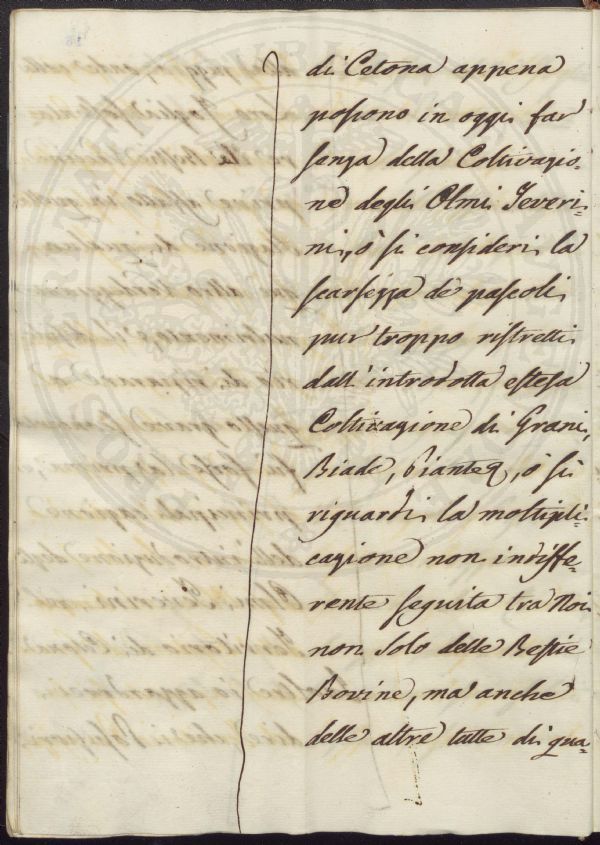 di Cetona appena
possono in oggi far
senza della Coltivazio-
ne degli Olmi Severi-
ni, ò si consideri la
scarsezza de pascoli
pur troppo ristretti
dall'introdotta estesa
Coltivazione di Grani,
Biade, ò si
riguardi la moltipli-
cazione non indiffe-
rente seguita tra Noi
non solo delle Bestie
Bovine, ma anche
delle altre tutte di qua-